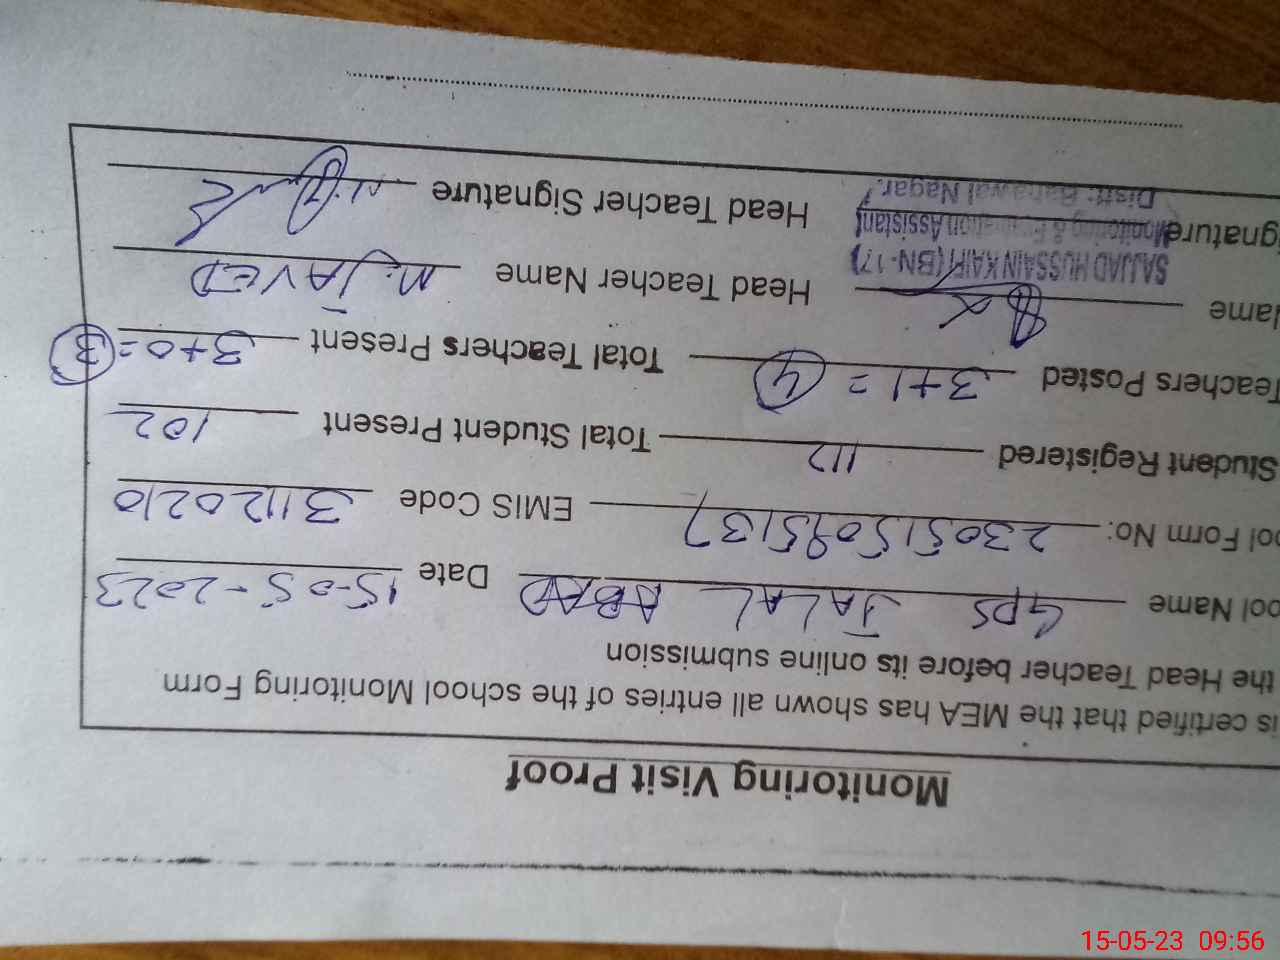 Monitoring Visit Proof
is certified that the MEA has shown all entries of the school Monitoring Form
the Head Teacher before its online submission
ool Name GPS JALAL ABAD Date 15-05-2023
ool Form No: 230515095137 EMIS Code 31120210
Student Registered 112 Total Student Present 102
Teachers Posted 3+1=4 Total Teachers Present 3+0=3
Name Head Teacher Name M. JAVED
SAJJAD HUSSAIN KAIFI (BN-17)
Monitoring & Evaluation Assistant
gnature Head Teacher Signature
Distt: Bahawal Nagar.
15-05-23 09:56